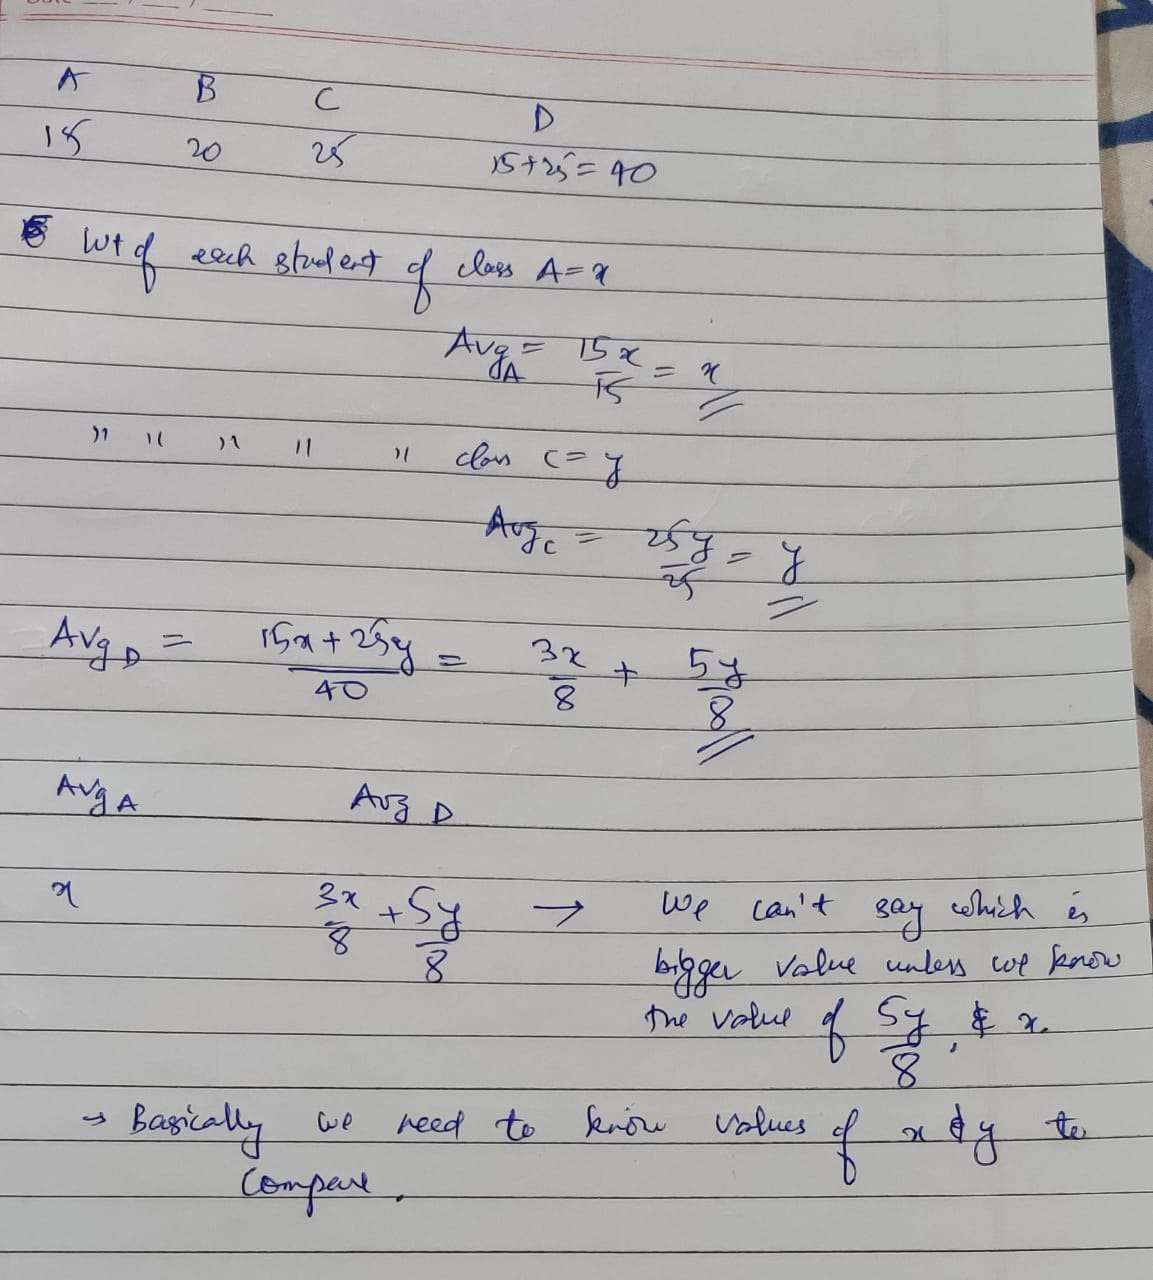 A B C D
15 20 25 15+25=40
Wt of each student of class A = x
Avg A = 15x/15 = x
" " " " " class C = y
Avg C = 25y/25 = y
Avg D = 15x + 25y/40 = 3x/8 + 5y/8
Avg A Avg D
x 3x/8 + 5y/8 → We can't say which is
bigger value unless we know
the value of 5y/8, & x.
→ Basically we need to know values of x & y to
compare.